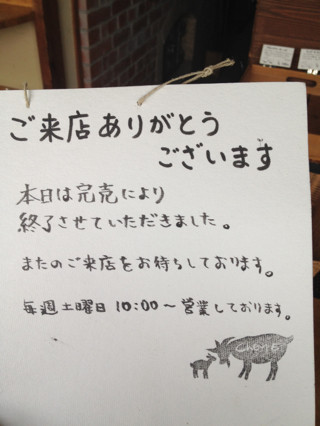 ご来店ありがとう
ございます
本日は完売により
終了させていただきました。
またのご来店をお待ちしております。
毎週土曜日 10:00〜営業しております。